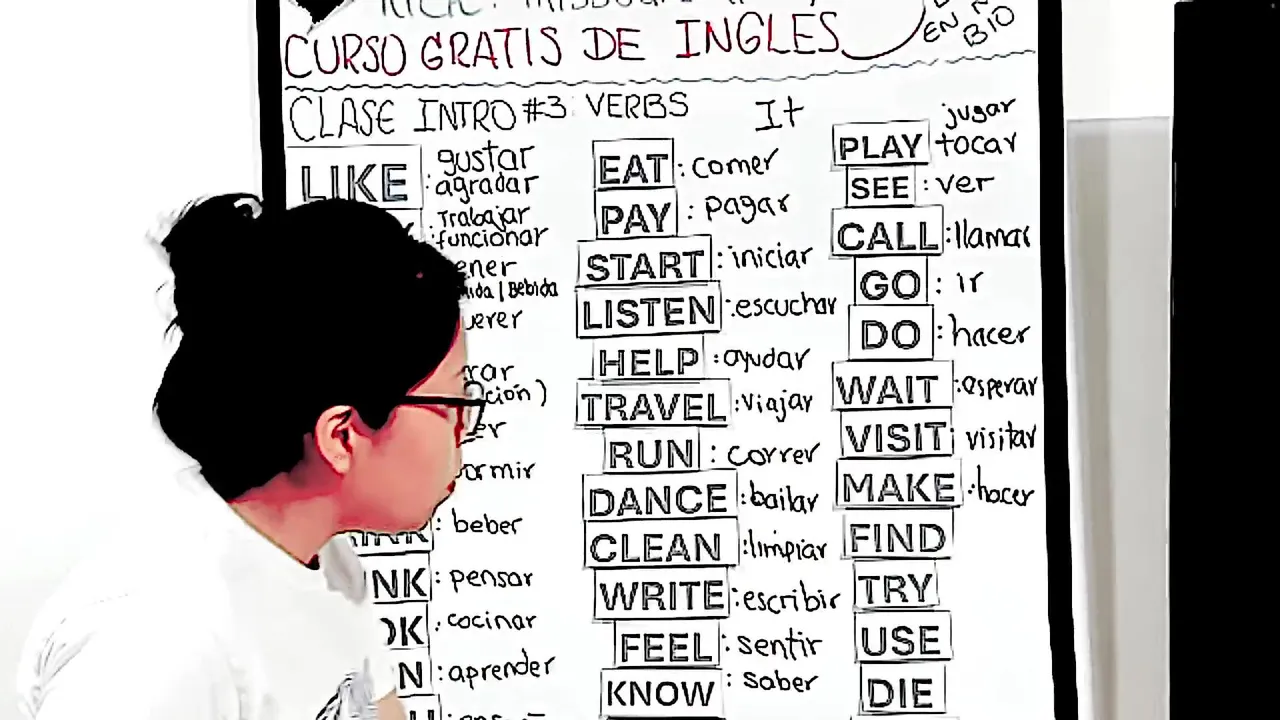 CURSO GRATIS DE INGLES
EN
BIO
CLASE INTRO #3: VERBS
It
LIKE : gustar
agradar
trabajar
: funcionar
beber
: pensar
: cocinar
: aprender
EAT : comer
PAY : pagar
START : iniciar
LISTEN : escuchar
HELP : ayudar
TRAVEL : viajar
RUN : correr
DANCE : bailar
CLEAN : limpiar
WRITE : escribir
FEEL : sentir
KNOW : saber
jugar
PLAY tocar
SEE : ver
CALL : llamar
GO : ir
DO : hacer
WAIT : esperar
VISIT : visitar
MAKE : hacer
FIND
TRY
USE
DIE